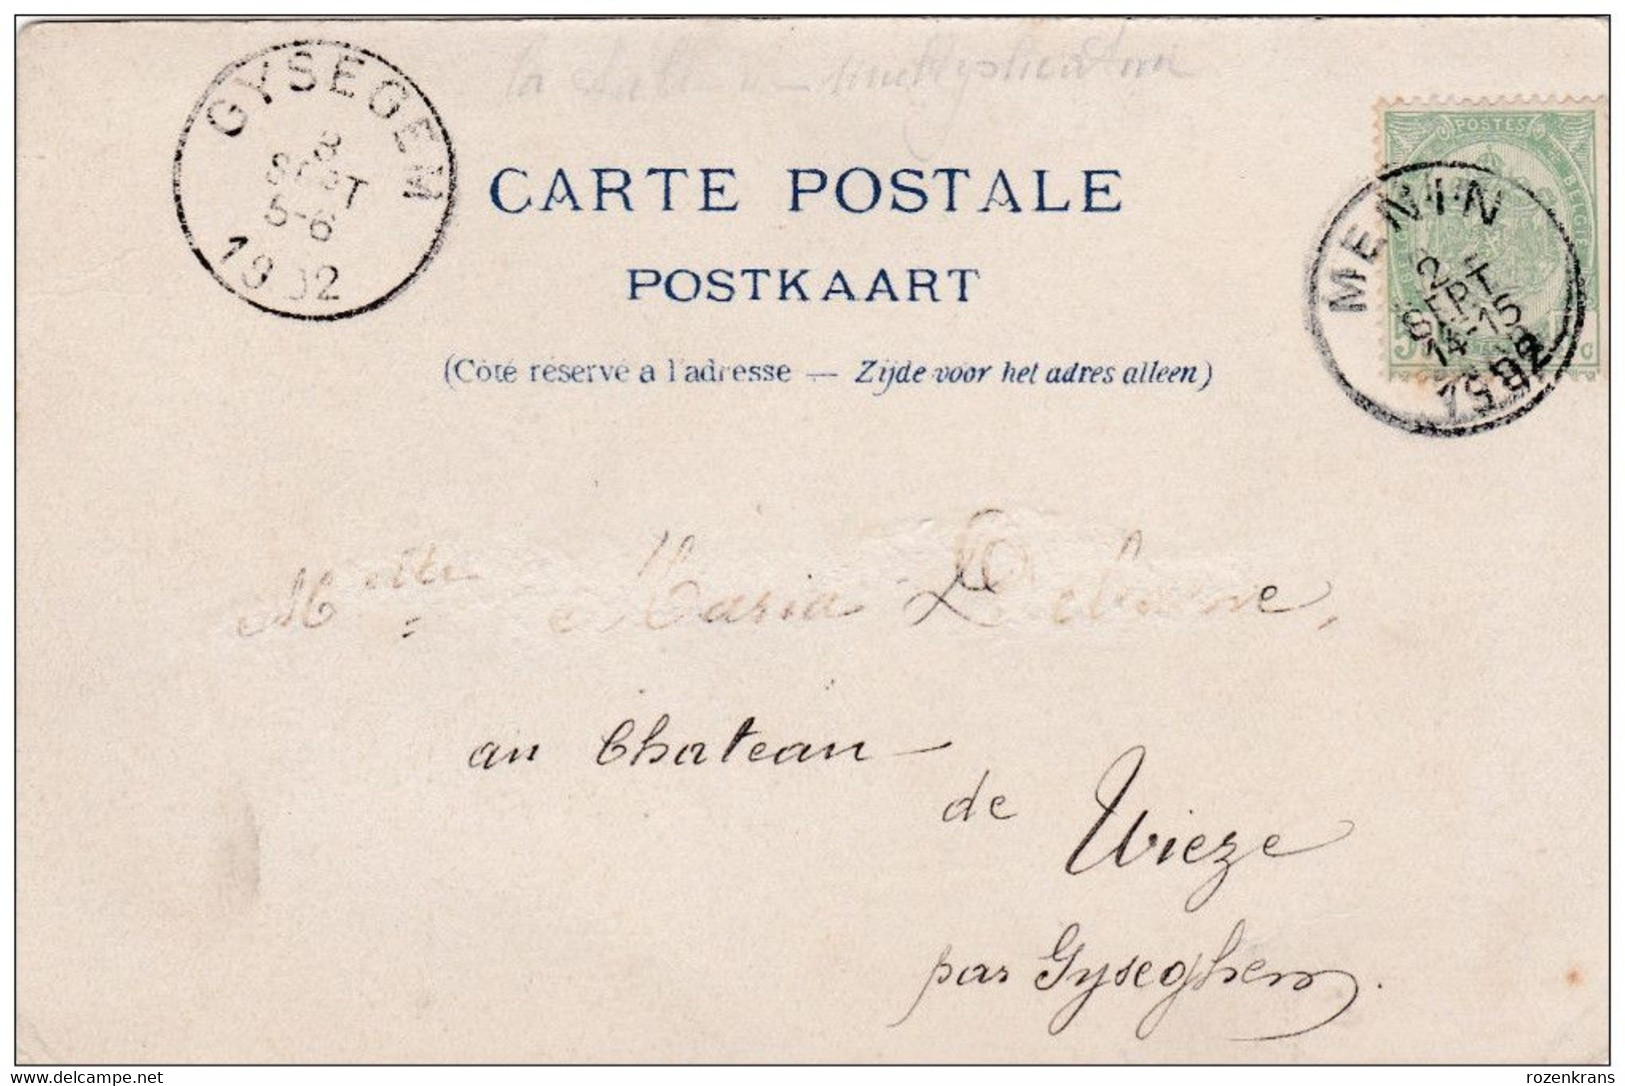 GYSEGEM
3
SEPT
5-6
1902
CARTE POSTALE
POSTKAART
(Côté réservé a l'adresse — Zijde voor het adres alleen)
POSTES
MENIN
2
SEPT
14-15
1902
Melle Maria
au Chateau
de Wieze
par Gyseghem.
delcampe.net
rozenkrans